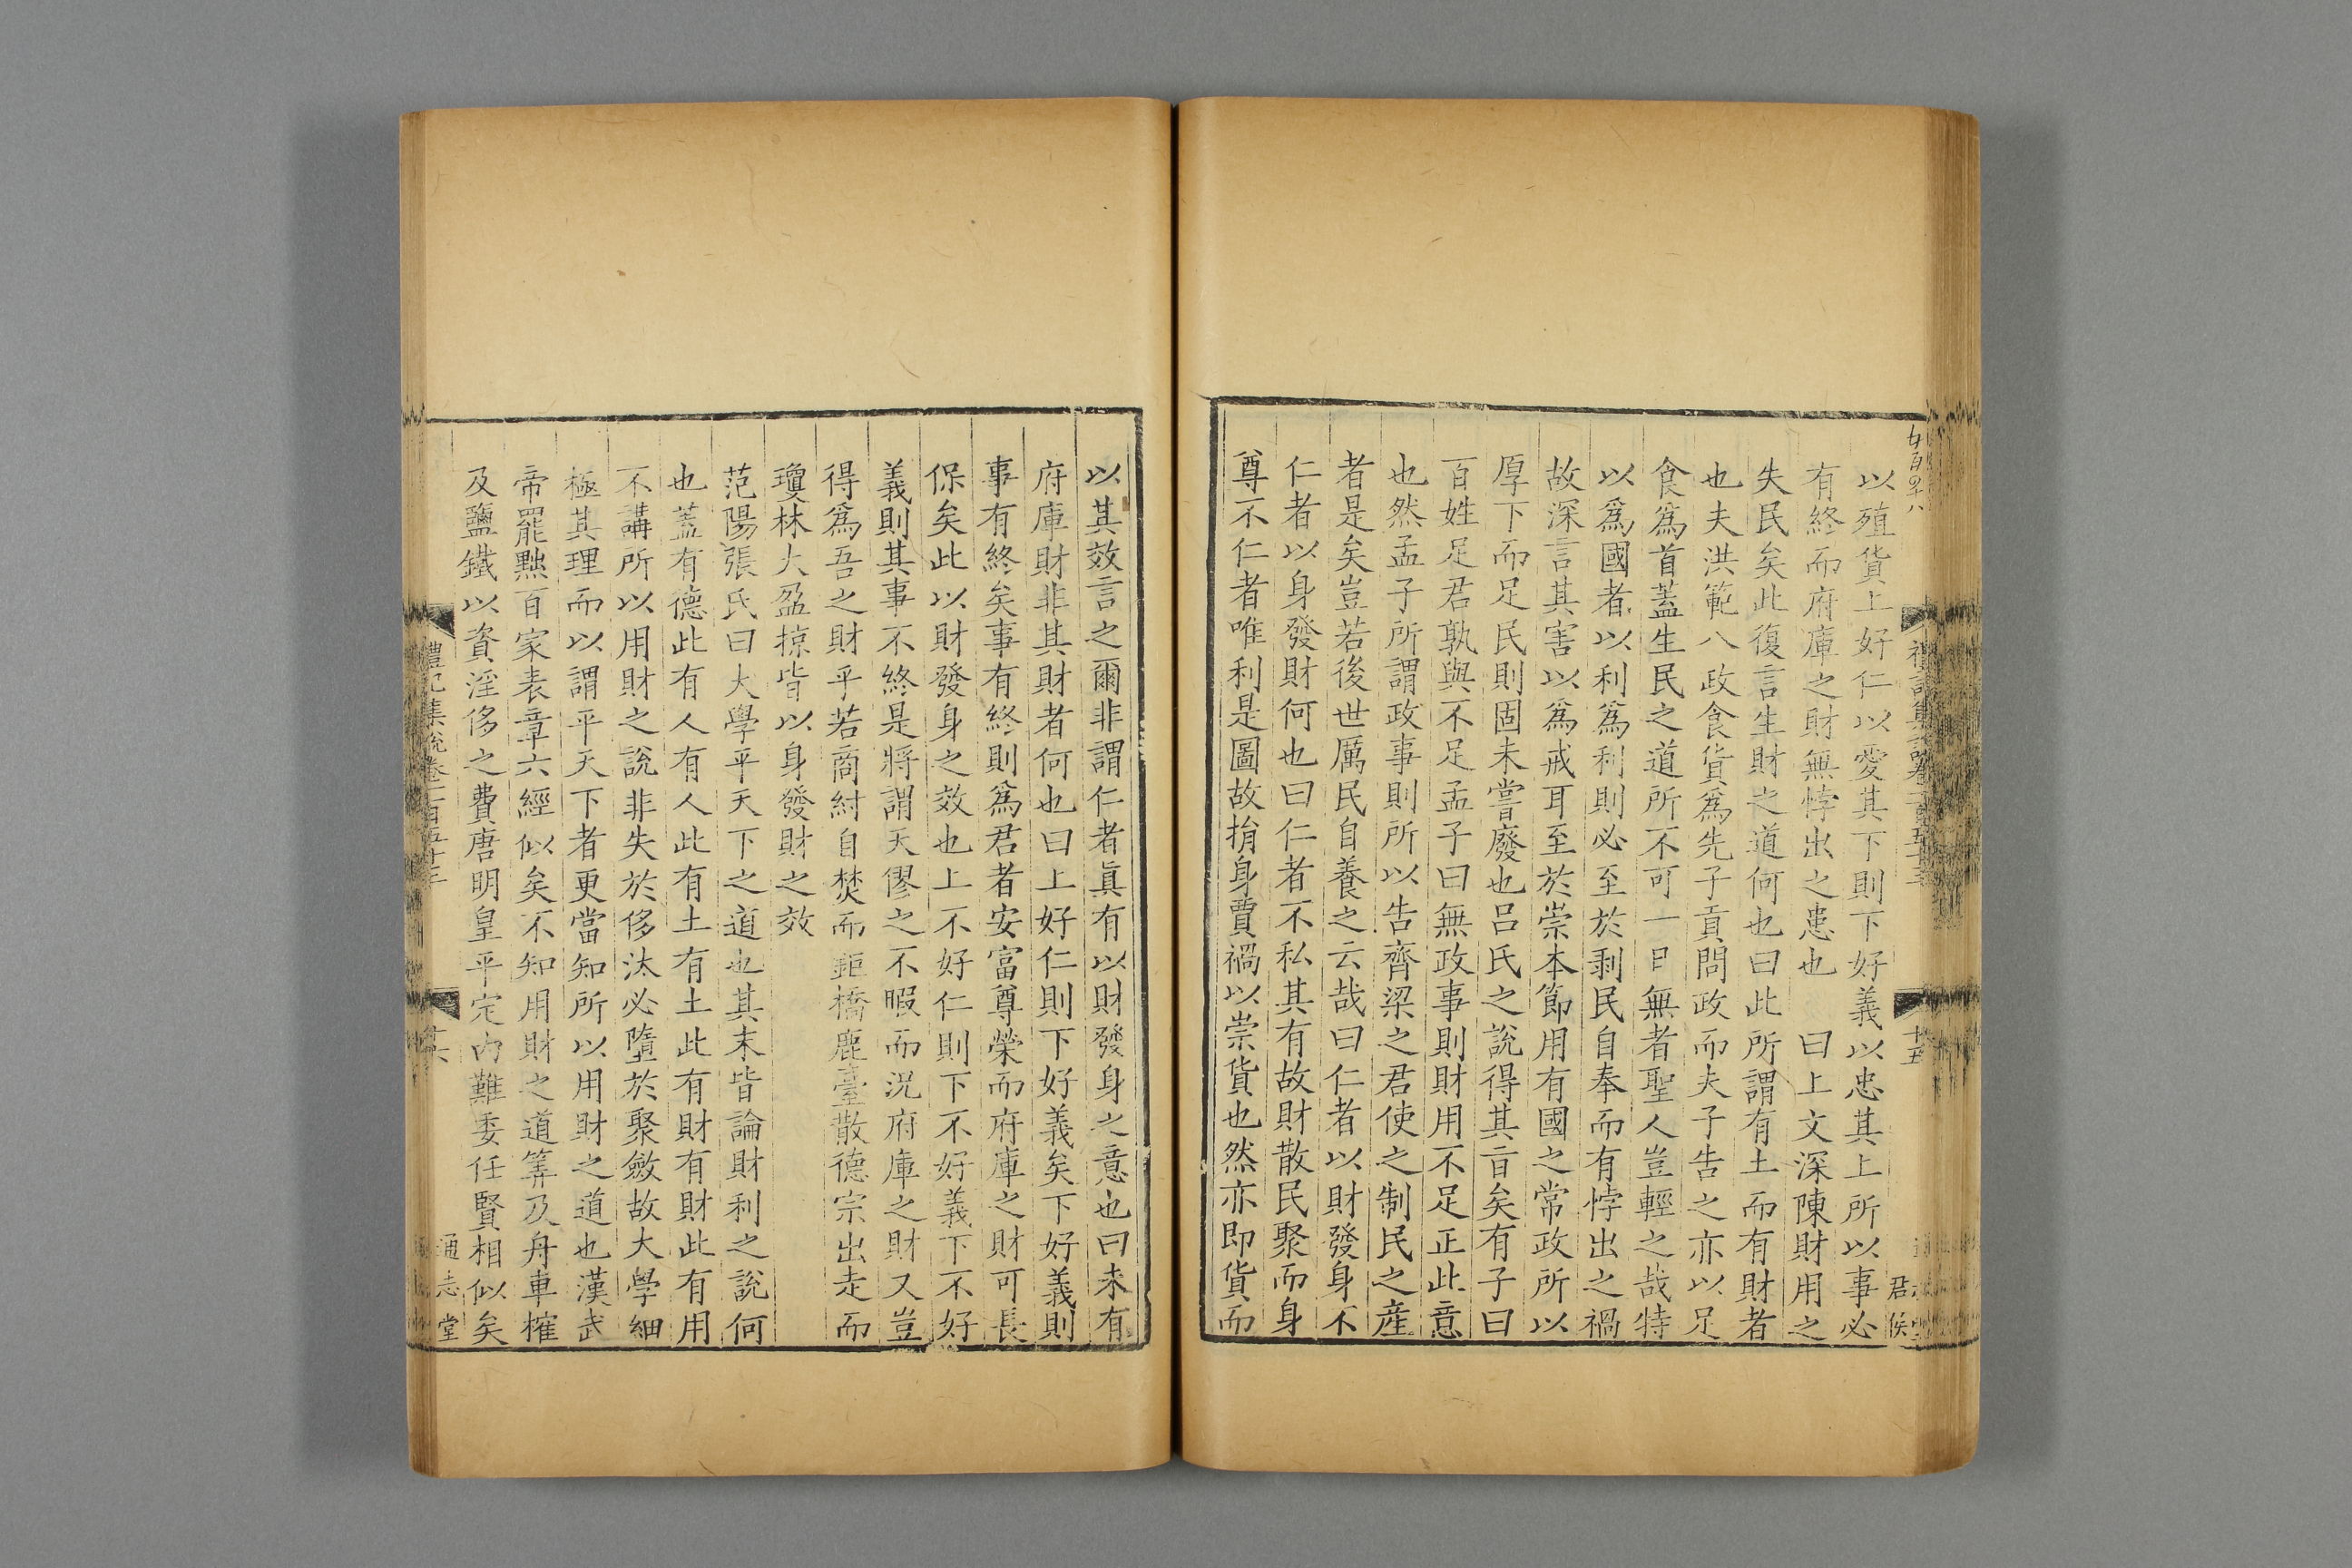 以殖貨上好仁以愛其下則下好義以忠其上所以事必
有終而府庫之財無悖出之患也　曰上文深陳財用之
失民矣此復言生財之道何也曰此所謂有土而有財者
也夫洪範八政食貨爲先子貢問政而夫子告之亦以足
食爲首蓋生民之道所不可一日無者聖人豈輕之哉特
以爲國者以利爲利則必至於剥民自奉而有悖出之禍
故深言其害以爲戒耳至於崇本節用有國之常政所以
厚下而足民則固未嘗廢也吕氏之說得其旨矣有子曰
百姓足君孰與不足孟子曰無政事則財用不足正此意
也然孟子所謂政事則所以告齊梁之君使之制民之産
者是矣豈若後世厲民自養之云哉曰仁者以財發身不
仁者以身發財何也曰仁者不私其有故財散民聚而身
尊不仁者唯利是圖故捐身賈禍以崇貨也然亦即貨而
以其效言之爾非謂仁者眞有以財發身之意也曰未有
府庫財非其財者何也曰上好仁則下好義矣下好義則
事有終矣事有終則爲君者安富尊榮而府庫之財可長
保矣此以財發身之效也上不好仁則下不好義下不好
義則其事不終是將謂天僇之不暇而況府庫之財又豈
得爲吾之財乎若商紂自焚而鉅橋鹿臺散德宗出走而
瓊林大盈掠皆以身發財之效
范陽張氏曰大學平天下之道也其末皆論財利之說何
也蓋有德此有人有人此有土有土此有財有財此有用
不講所以用財之說非失於侈汰必墮於聚斂故大學細
極其理而以謂平天下者更當知所以用財之道也漢武
帝罷黜百家表章六經似矣不知用財之道筭及舟車榷
及鹽鐵以資淫侈之費唐明皇平定内難委任賢相似矣
禮記集說卷一百五十三
十六
通志堂